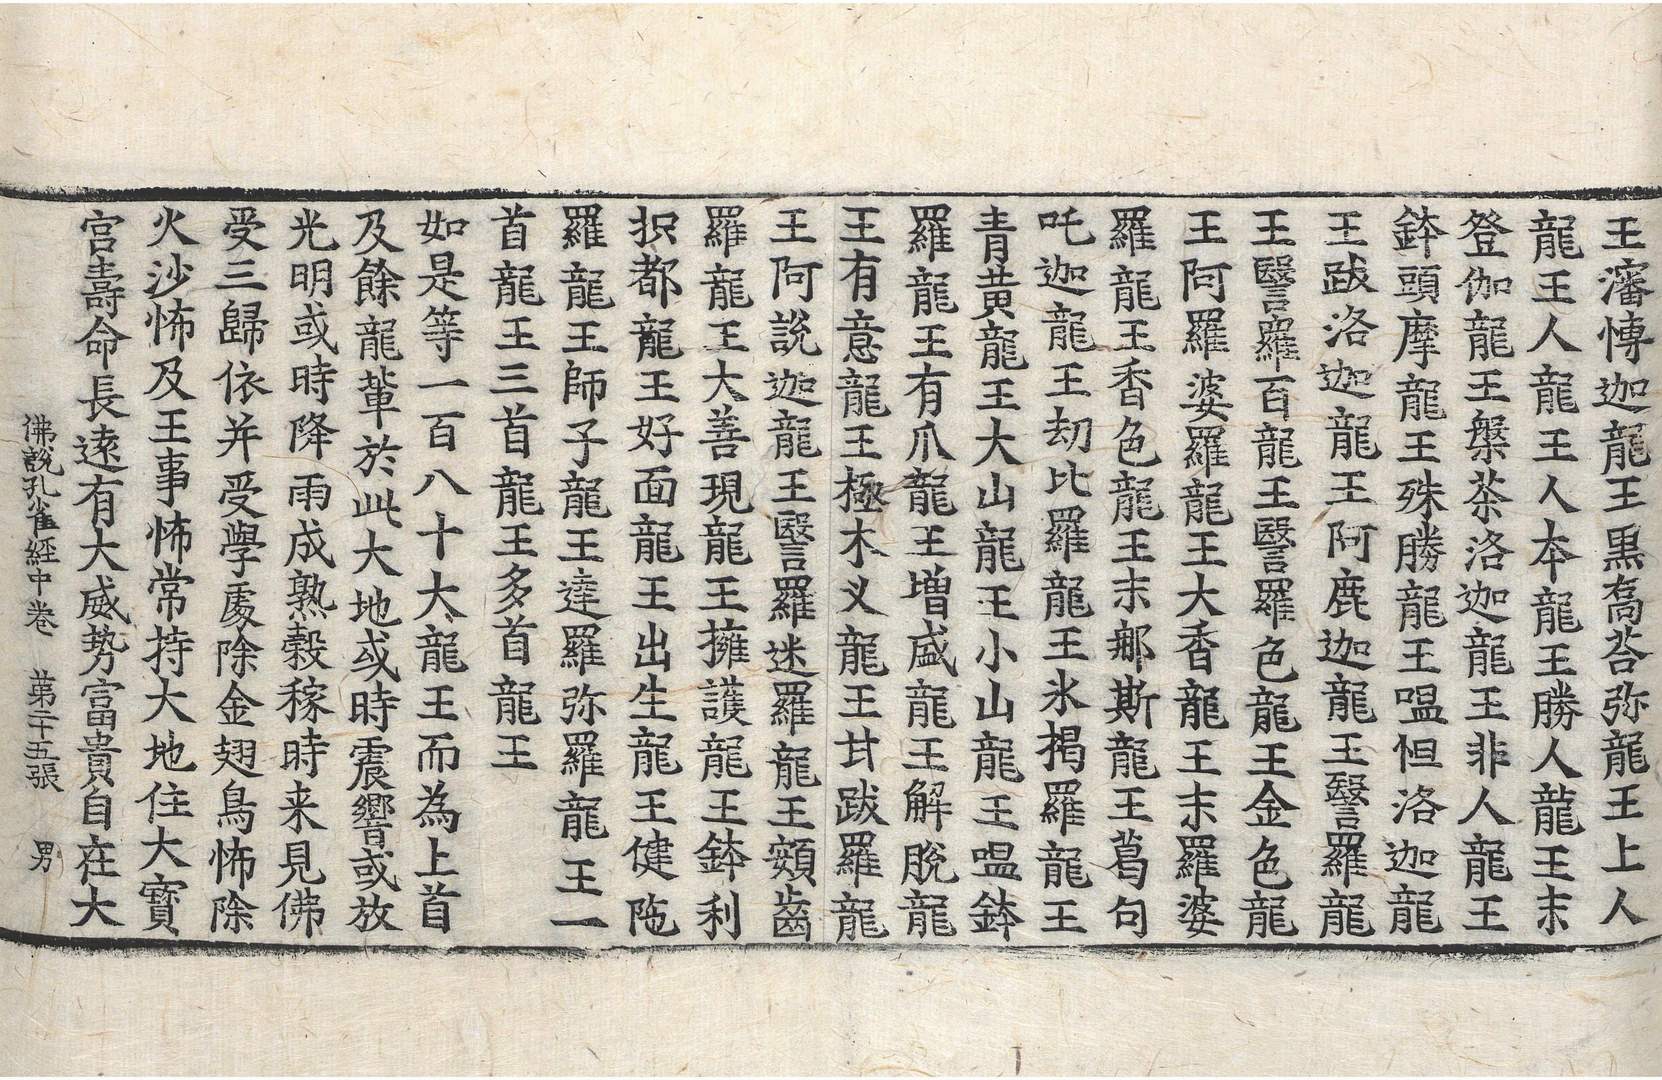 王瀋愽迦龍王黒喬荅弥龍王上人
龍王人龍王人本龍王勝人龍王末
登伽龍王槃荼洛迦龍王非人龍王
鉢頭摩龍王殊勝龍王嗢怛洛迦龍
王跋洛迦龍王阿鹿迦龍王瑿羅龍
王瑿羅百龍王瑿羅色龍王金色龍
王阿羅婆羅龍王大香龍王末羅婆
羅龍王香色龍王末郍斯龍王葛句
吒迦龍王刧比羅龍王氷揭羅龍王
青黄龍王大山龍王小山龍王嗢鉢
羅龍王有爪龍王増盛龍王解脫龍
王有意龍王極木义龍王甘跋羅龍
王阿説迦龍王瑿羅迷羅龍王頞齒
羅龍王大善現龍王擁護龍王鉢利
抧都龍王好面龍王出生龍王健陁
羅龍王師子龍王達羅弥羅龍王一
首龍王三首龍王多首龍王
如是等一百八十大龍王而為上首
及餘龍輩於此大地或時震響或放
光明或時降雨成熟穀稼時来見佛
受三歸依并受學處除金翅鳥怖除
火沙怖及王事怖常持大地住大寳
宮壽命長逺有大威勢富貴自在大
佛說孔雀經中卷　第二十五張　男